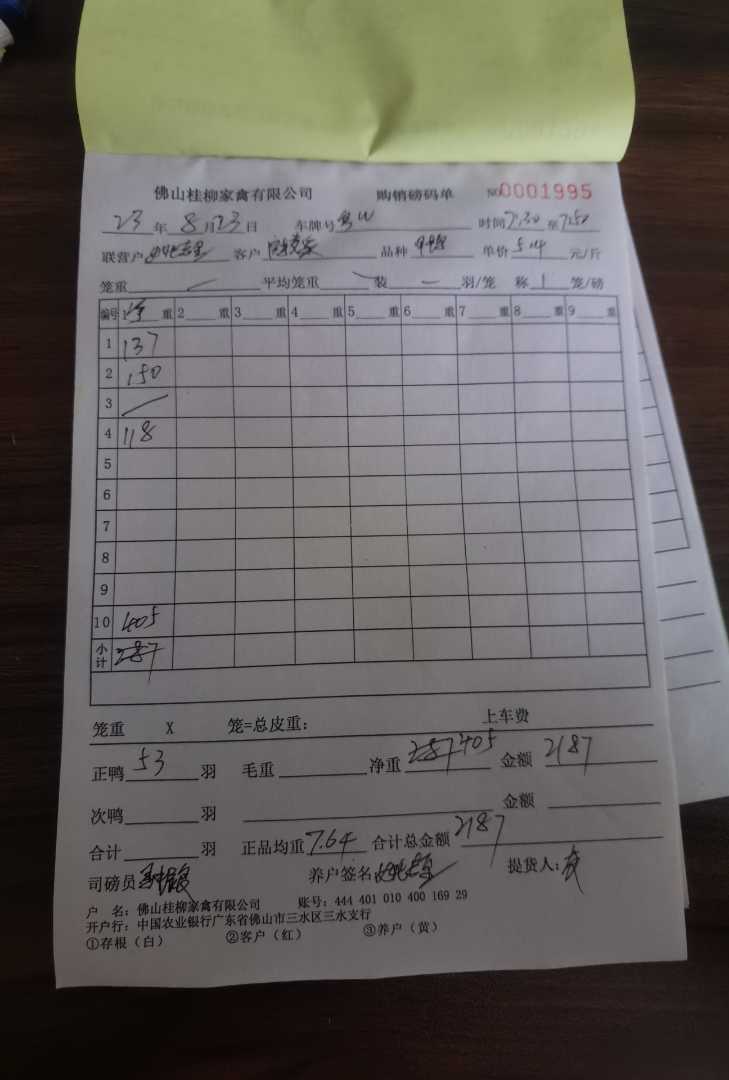 佛山桂柳家禽有限公司 购销磅码单 № 0001995
23 年 8 月 23 日 车牌号 粤W 时间 7:30 至 7:50
联营户 客户 品种 单价 5.4 元/斤
笼重 平均笼重 装 羽/笼 称 1 笼/磅
编号 1 净 重 2 重 3 重 4 重 5 重 6 重 7 重 8 重 9 重
1 137
2 150
3
4 118
5
6
7
8
9
10 405
小计 287
笼重 X 笼=总皮重: 上车费
正鸭 53 羽 毛重 净重 287 405 金额 2187
次鸭 羽 金额
合计 羽 正品均重 7.64 合计总金额 2187
司磅员 养户签名 提货人:
户 名: 佛山桂柳家禽有限公司 账号: 444 401 010 400 169 29
开户行: 中国农业银行广东省佛山市三水区三水支行
①存根(白) ②客户(红) ③养户(黄)